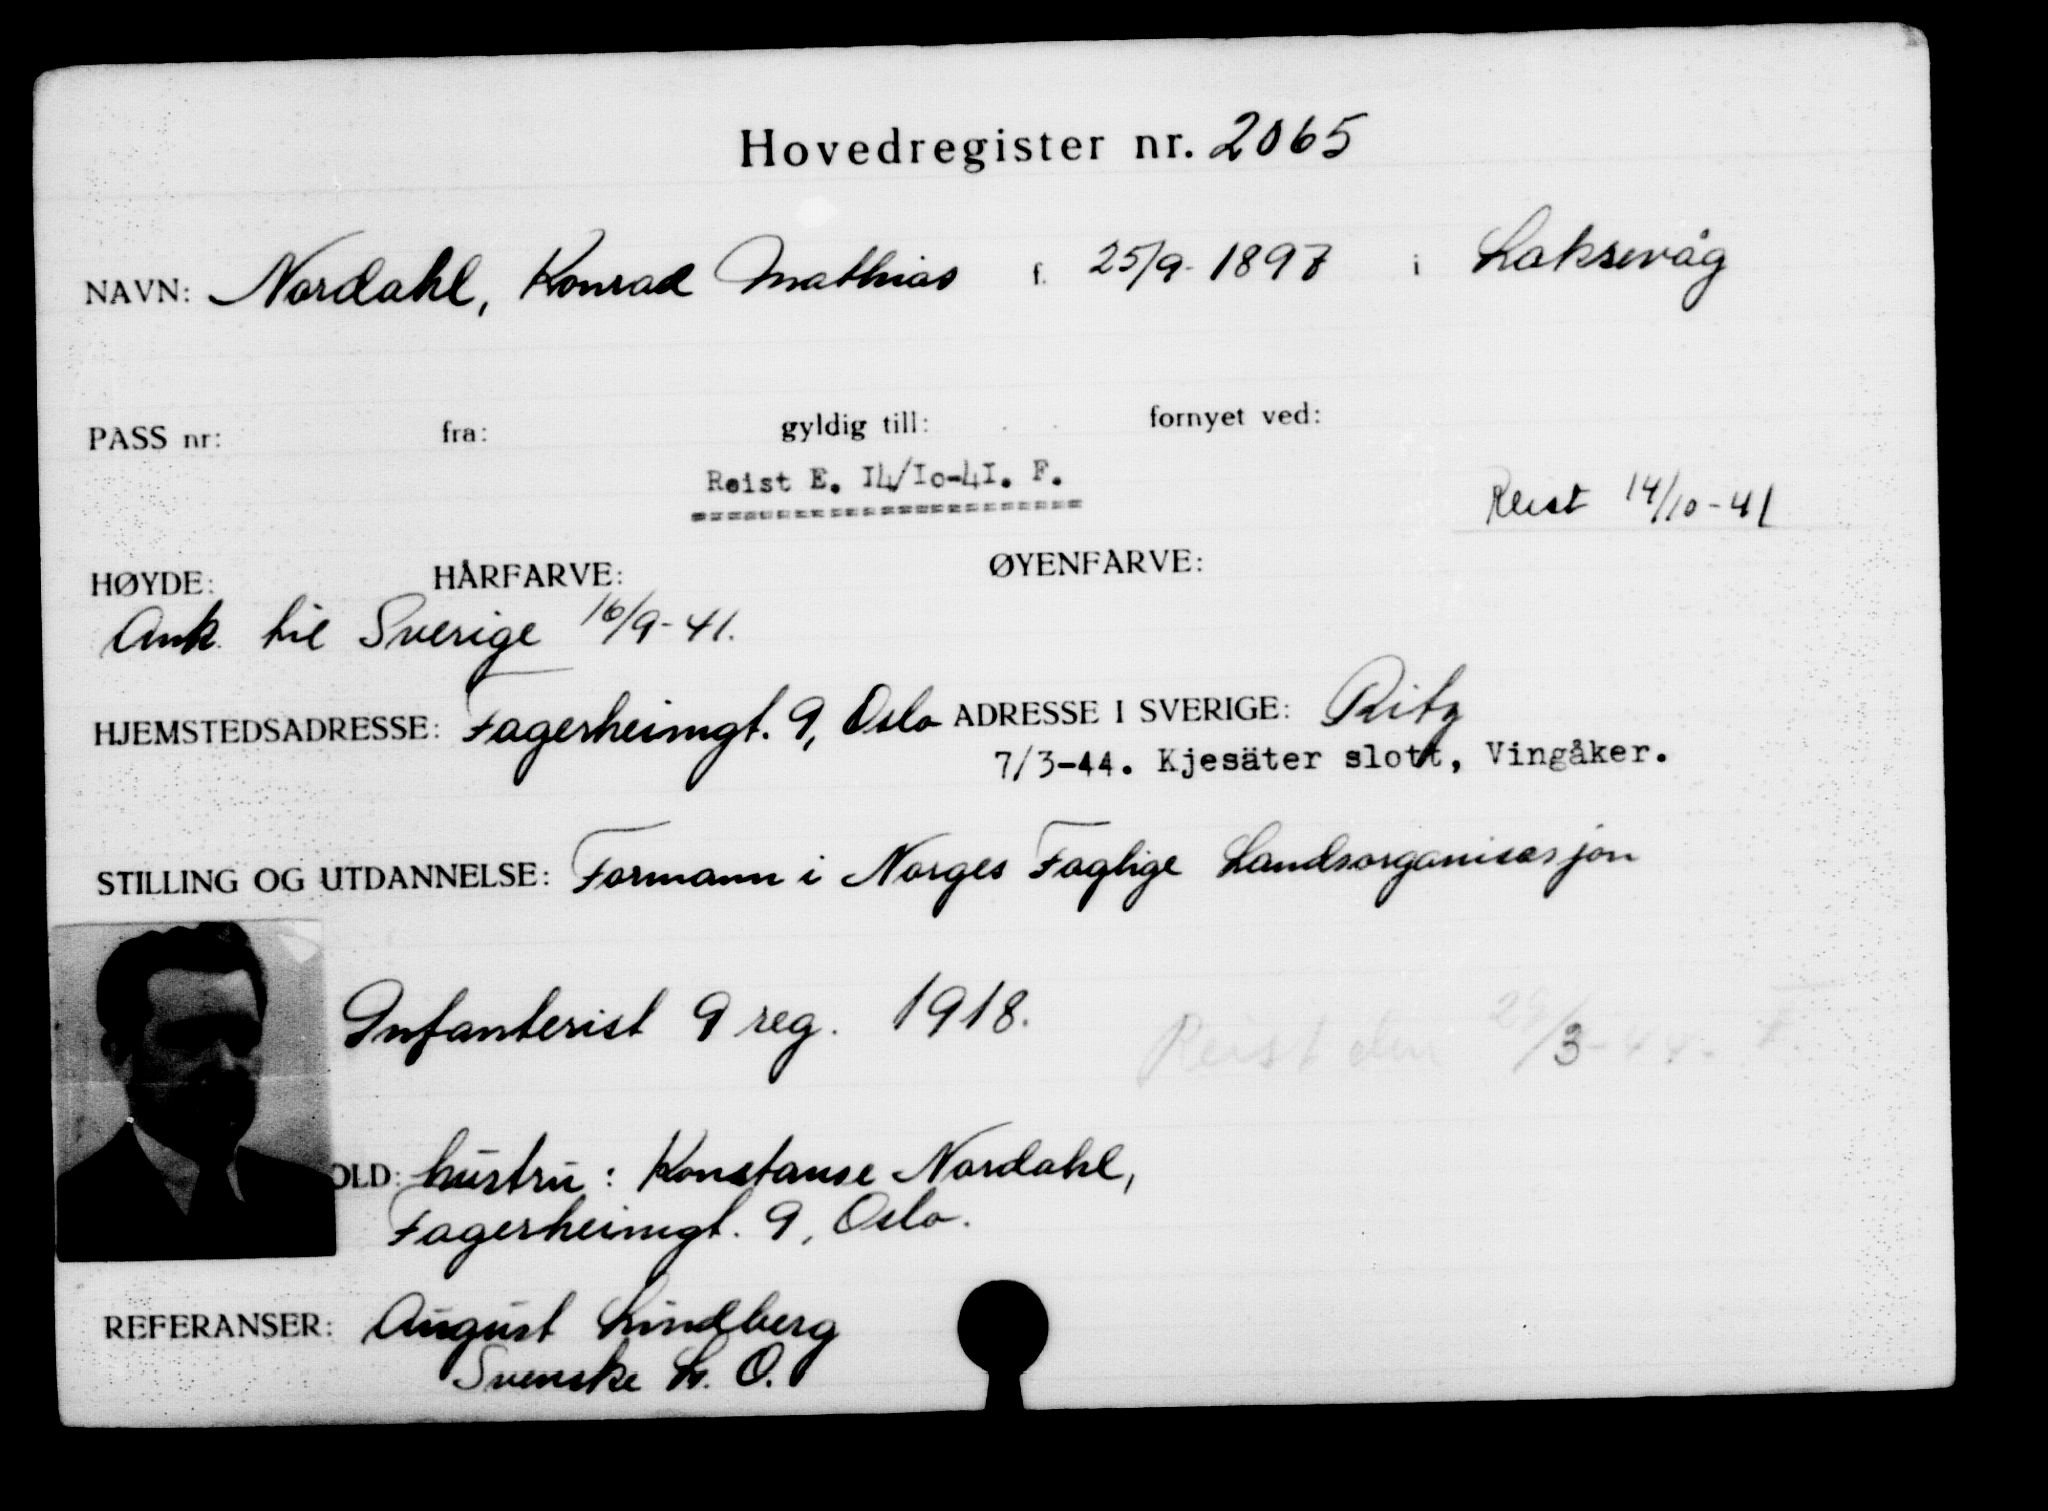 Hovedregister nr. 2065
NAVN: Nordahl, Konrad Mathias f. 25/9-1897 i Laksevåg
PASS nr: fra: gyldig till: fornyet ved:
Reist E. I4/Io-4I. F.
Reist 14/10-41
HØYDE: HÅRFARVE: ØYENFARVE:
Ank. til Sverige 16/9-41.
HJEMSTEDSADRESSE: Fagerheimgt. 9, Oslo ADRESSE I SVERIGE: Ritz
7/3-44. Kjesäter slott, Vingåker.
STILLING OG UTDANNELSE: Formann i Norges Faglige Landsorganisasjon
Infanterist 9 reg. 1918.
Reist den 29/3-44. F.
OLD: hustru: Konstanse Nordahl,
Fagerheimgt. 9, Oslo.
REFERANSER: August Lindberg
Svenske L. O.